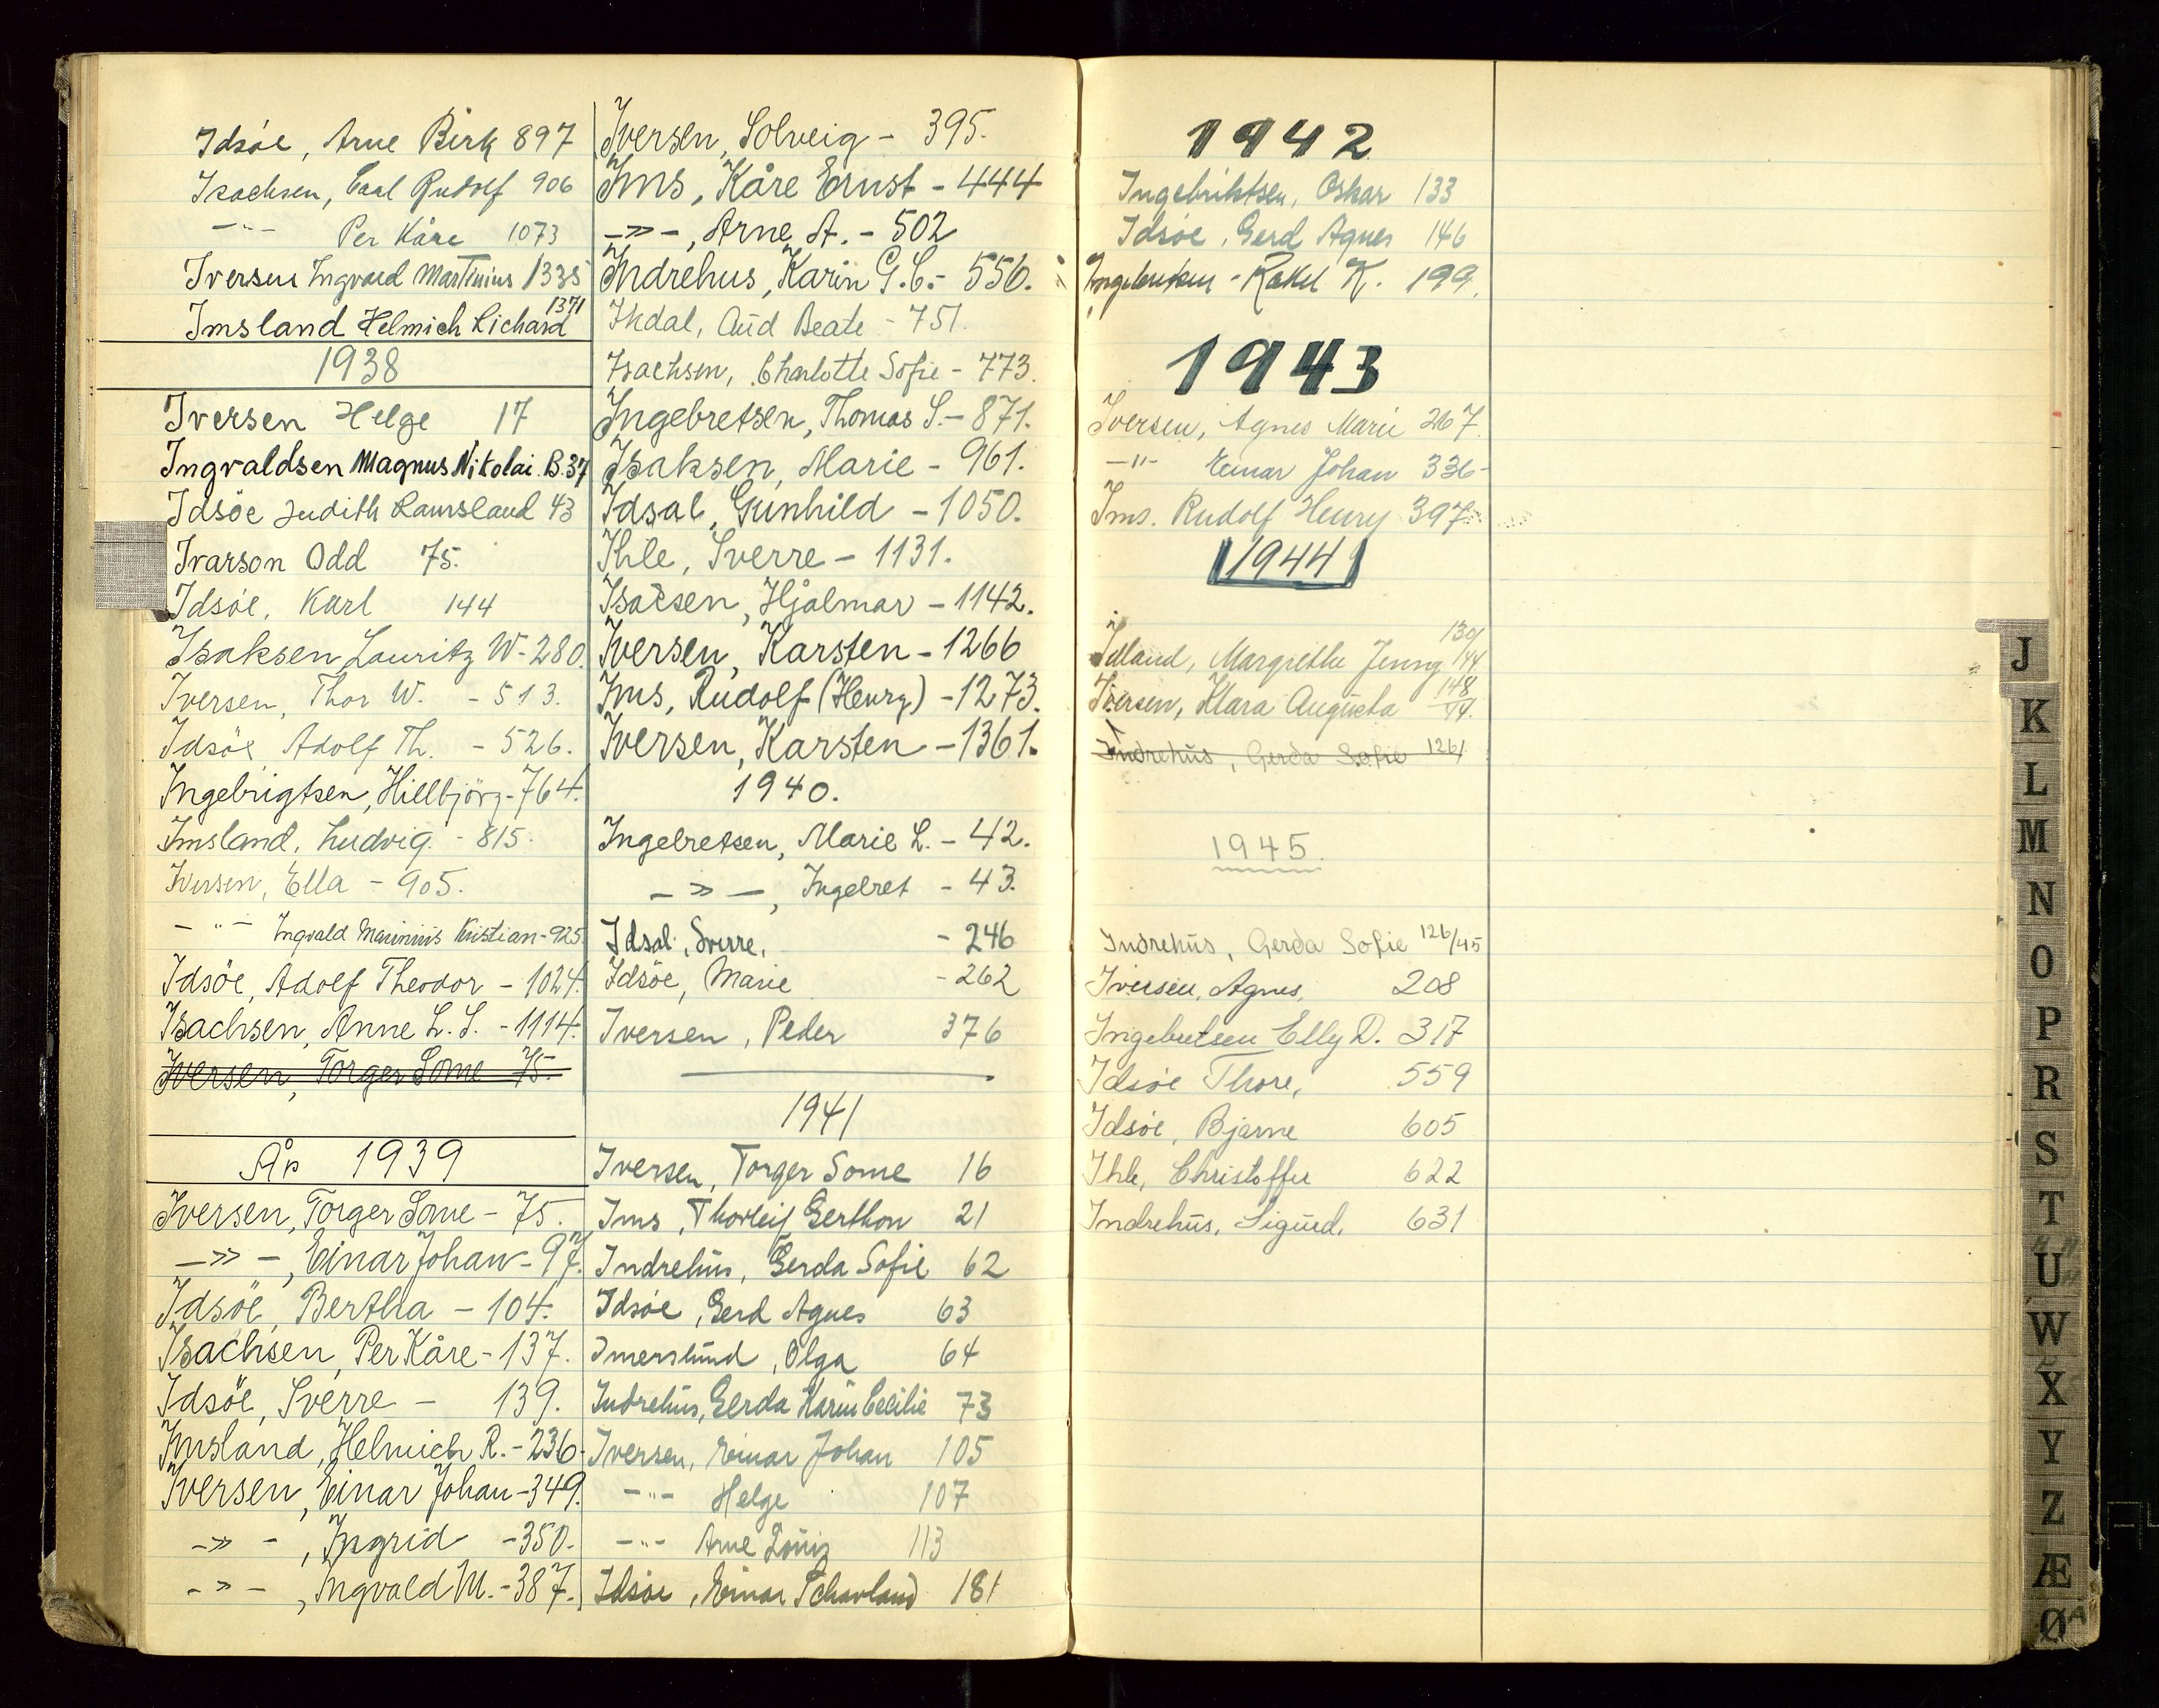 Idsöe, Arne Birk 897
Isachsen, Carl Rudolf 906
-"- Per Kåre 1073
Iversen Ingvald Martinius 1335
1371
Imsland Helmich Richard
1938
Iversen Helge 17
Ingvaldsen Magnus Nikolai B. 37
Idsöe Judith Ramsland 43
Ivarson Odd 75.
Idsöe, Karl 144
Isaksen Lauritz W - 280.
Iversen, Thor W. - 513.
Idsöe, Adolf Th. - 526.
Ingebrigtsen, Hillbjörg - 764.
Imsland, Ludvig - 815.
Iversen, Ella - 905.
- " - Ingvald Marinius Kristian - 925
Idsöe, Adolf Theodor - 1024.
Isachsen, Anne L. S. - 1114.
Iversen, Torger Some 75.
År 1939
Iversen, Torger Some - 75.
- » -, Einar Johan - 97.
Idsöe, Bertha - 104.
Isachsen, Per Kåre - 137.
Idsöe, Sverre - 139.
Imsland, Helmich R. - 236.
Iversen, Einar Johan - 349.
- » - , Ingrid - 350.
- » - , Ingvald M. - 387.
Iversen, Solveig - 395.
Ims, Kåre Ernst - 444
- » -, Arne A. - 502
Indrehus, Karin G. C. - 556.
Ikdal, Aud Beate - 751.
Isachsen, Charlotte Sofie - 773.
Ingebretsen, Thomas S. - 871.
Isaksen, Marie - 961.
Idsal, Gunhild - 1050.
Ihle, Sverre - 1131.
Isaksen, Hjalmar - 1142.
Iversen, Karsten - 1266
Ims, Rudolf (Henry) - 1273.
Iversen, Karsten - 1361.
1940.
Ingebretsen, Marie L. - 42.
- » -, Ingebret - 43.
Idsal, Sverre, - 246
Idsöe, Marie - 262
Iversen, Peder 376
1941
Iversen, Torger Some 16
Ims, Thorleif Gerthon 21
Indrehus, Gerda Sofie 62
Idsöe, Gerd Agnes 63
Imerslund, Olga 64
Indrehus, Gerda Karin Cecilie 73
Iversen, Einar Johan 105
- " - Helge 107
- " - Arne 113
Idsöe, Einar Scharland 181
1942
Ingebriktsen, Oskar 133
Idsöe, Gerd Agnes 146
Rakel K. 199.
1943
Iversen, Agnes Marie 267.
- " - Einar Johan 336 -
Ims. Rudolf Henry 397
1944
130/
Margrethe Jenny 44
Iversen, Klara Augusta 148/44.
Indrehus, Gerda Sofie 126/
1945.
Indrehus, Gerda Sofie 126/45
Iversen, Agnes, 208
Ingebretsen Elly D. 317
Idsöe Thore, 559
Idsöe, Bjarne 605
Ihle, Christoffer 622
Indrehus, Sigurd, 631
J
K
L
M
N
O
P
R
S
T
U
W
X
Y
Z
Æ
Ø
A